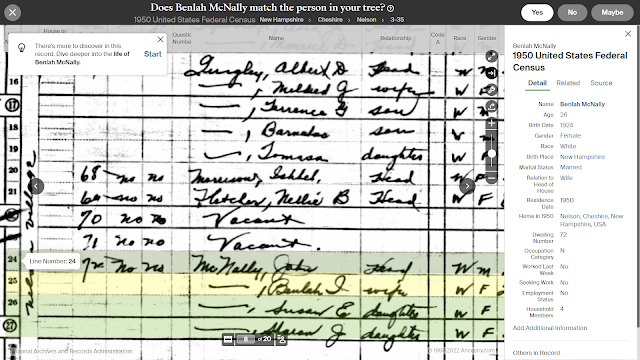 Does Benlah McNally match the person in your tree?
1950 United States Federal Census New Hampshire > Cheshire > Nelson > 3-35
Yes No Maybe
There's more to discover in this
record. Dive deeper into the life of
Benlah McNally.
Start
House or
Questic
Numbe
Name
Relationship
Code
A
Race
Gender
Quigley, Albert D Head W M
16 —, Mildred J wife W F
17 —, Terrence G son W
18 —, Barnabas son W
19 —, daughter W F
20 68 no no Head W
21 69 no no Fletcher, Nellie B Head W F
70 no no Vacant
71 no no Vacant.
24 72 No no McNally, John Head W M
25 —, Beulah I wife W F
26 —, Susan E daughter W F
27 —, Sharon J daughter W F
Line Number: 24
8 of 20
National Archives and Records Administration
© 1997-2022 Ancestry.com
Benlah McNally
1950 United States Federal
Census
Detail Related Source
Name Benlah McNally
Age 26
Birth Date 1924
Gender Female
Race White
Birth Place New Hampshire
Marital Status Married
Relation to
Head of
House
Wife
Residence
Date
1950
Home in 1950 Nelson, Cheshire, New
Hampshire, USA
Dwelling
Number
72
Occupation
Category
N
Worked Last
Week
No
Seeking Work No
Employment
Status
No
Household
Members
4
Add Additional Information
Others in Record